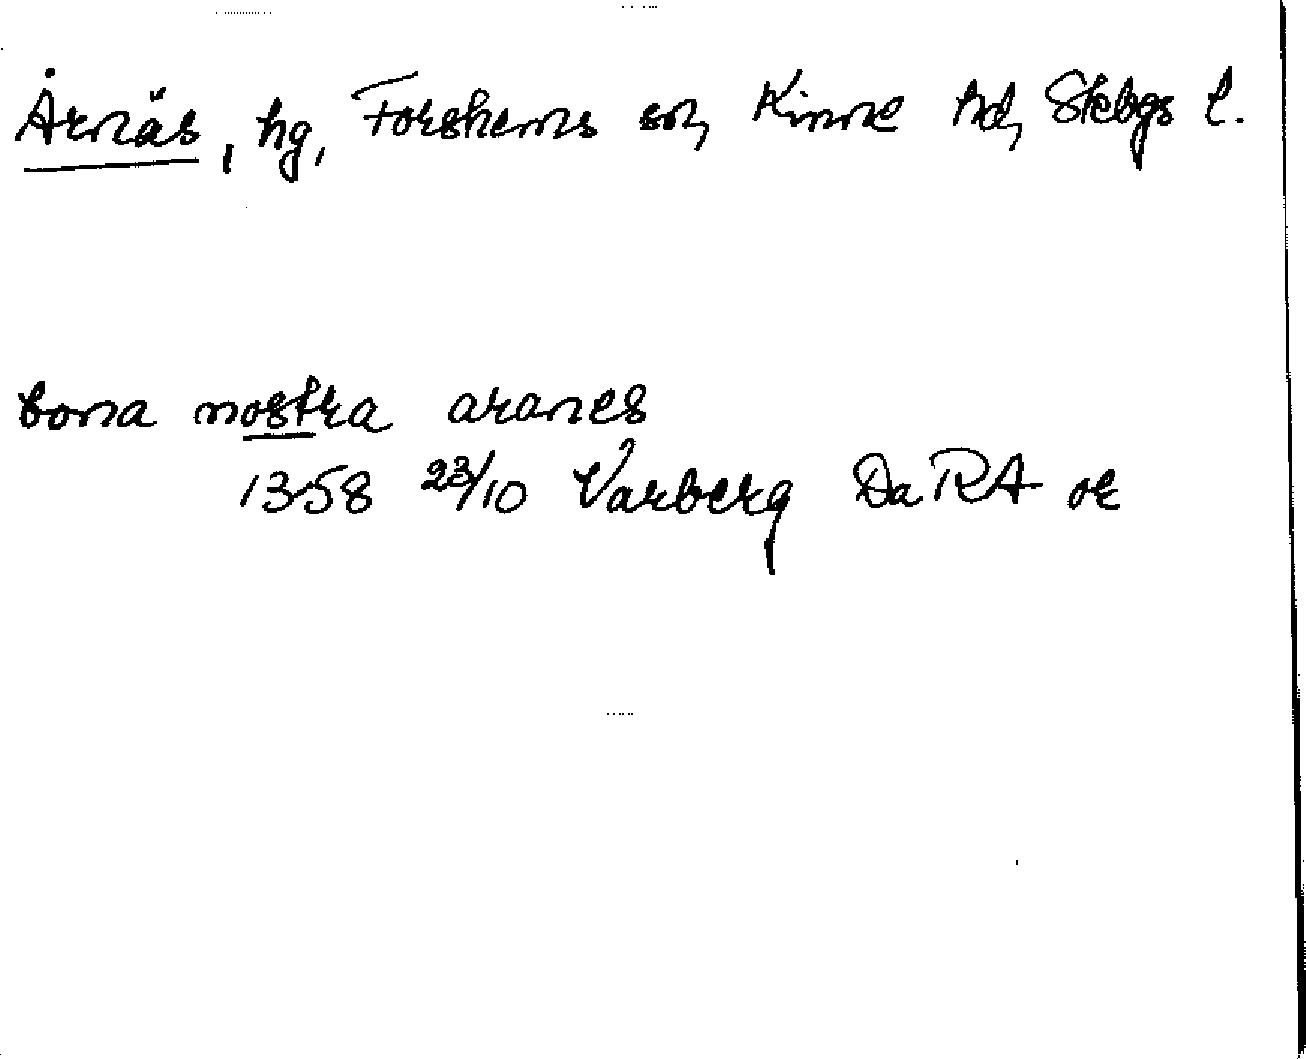 Årnäs, hg, Forshems sn, Kinne hd, Skbgs l.
bona nostra aranes
1358 23/10 Varberg DaRA or